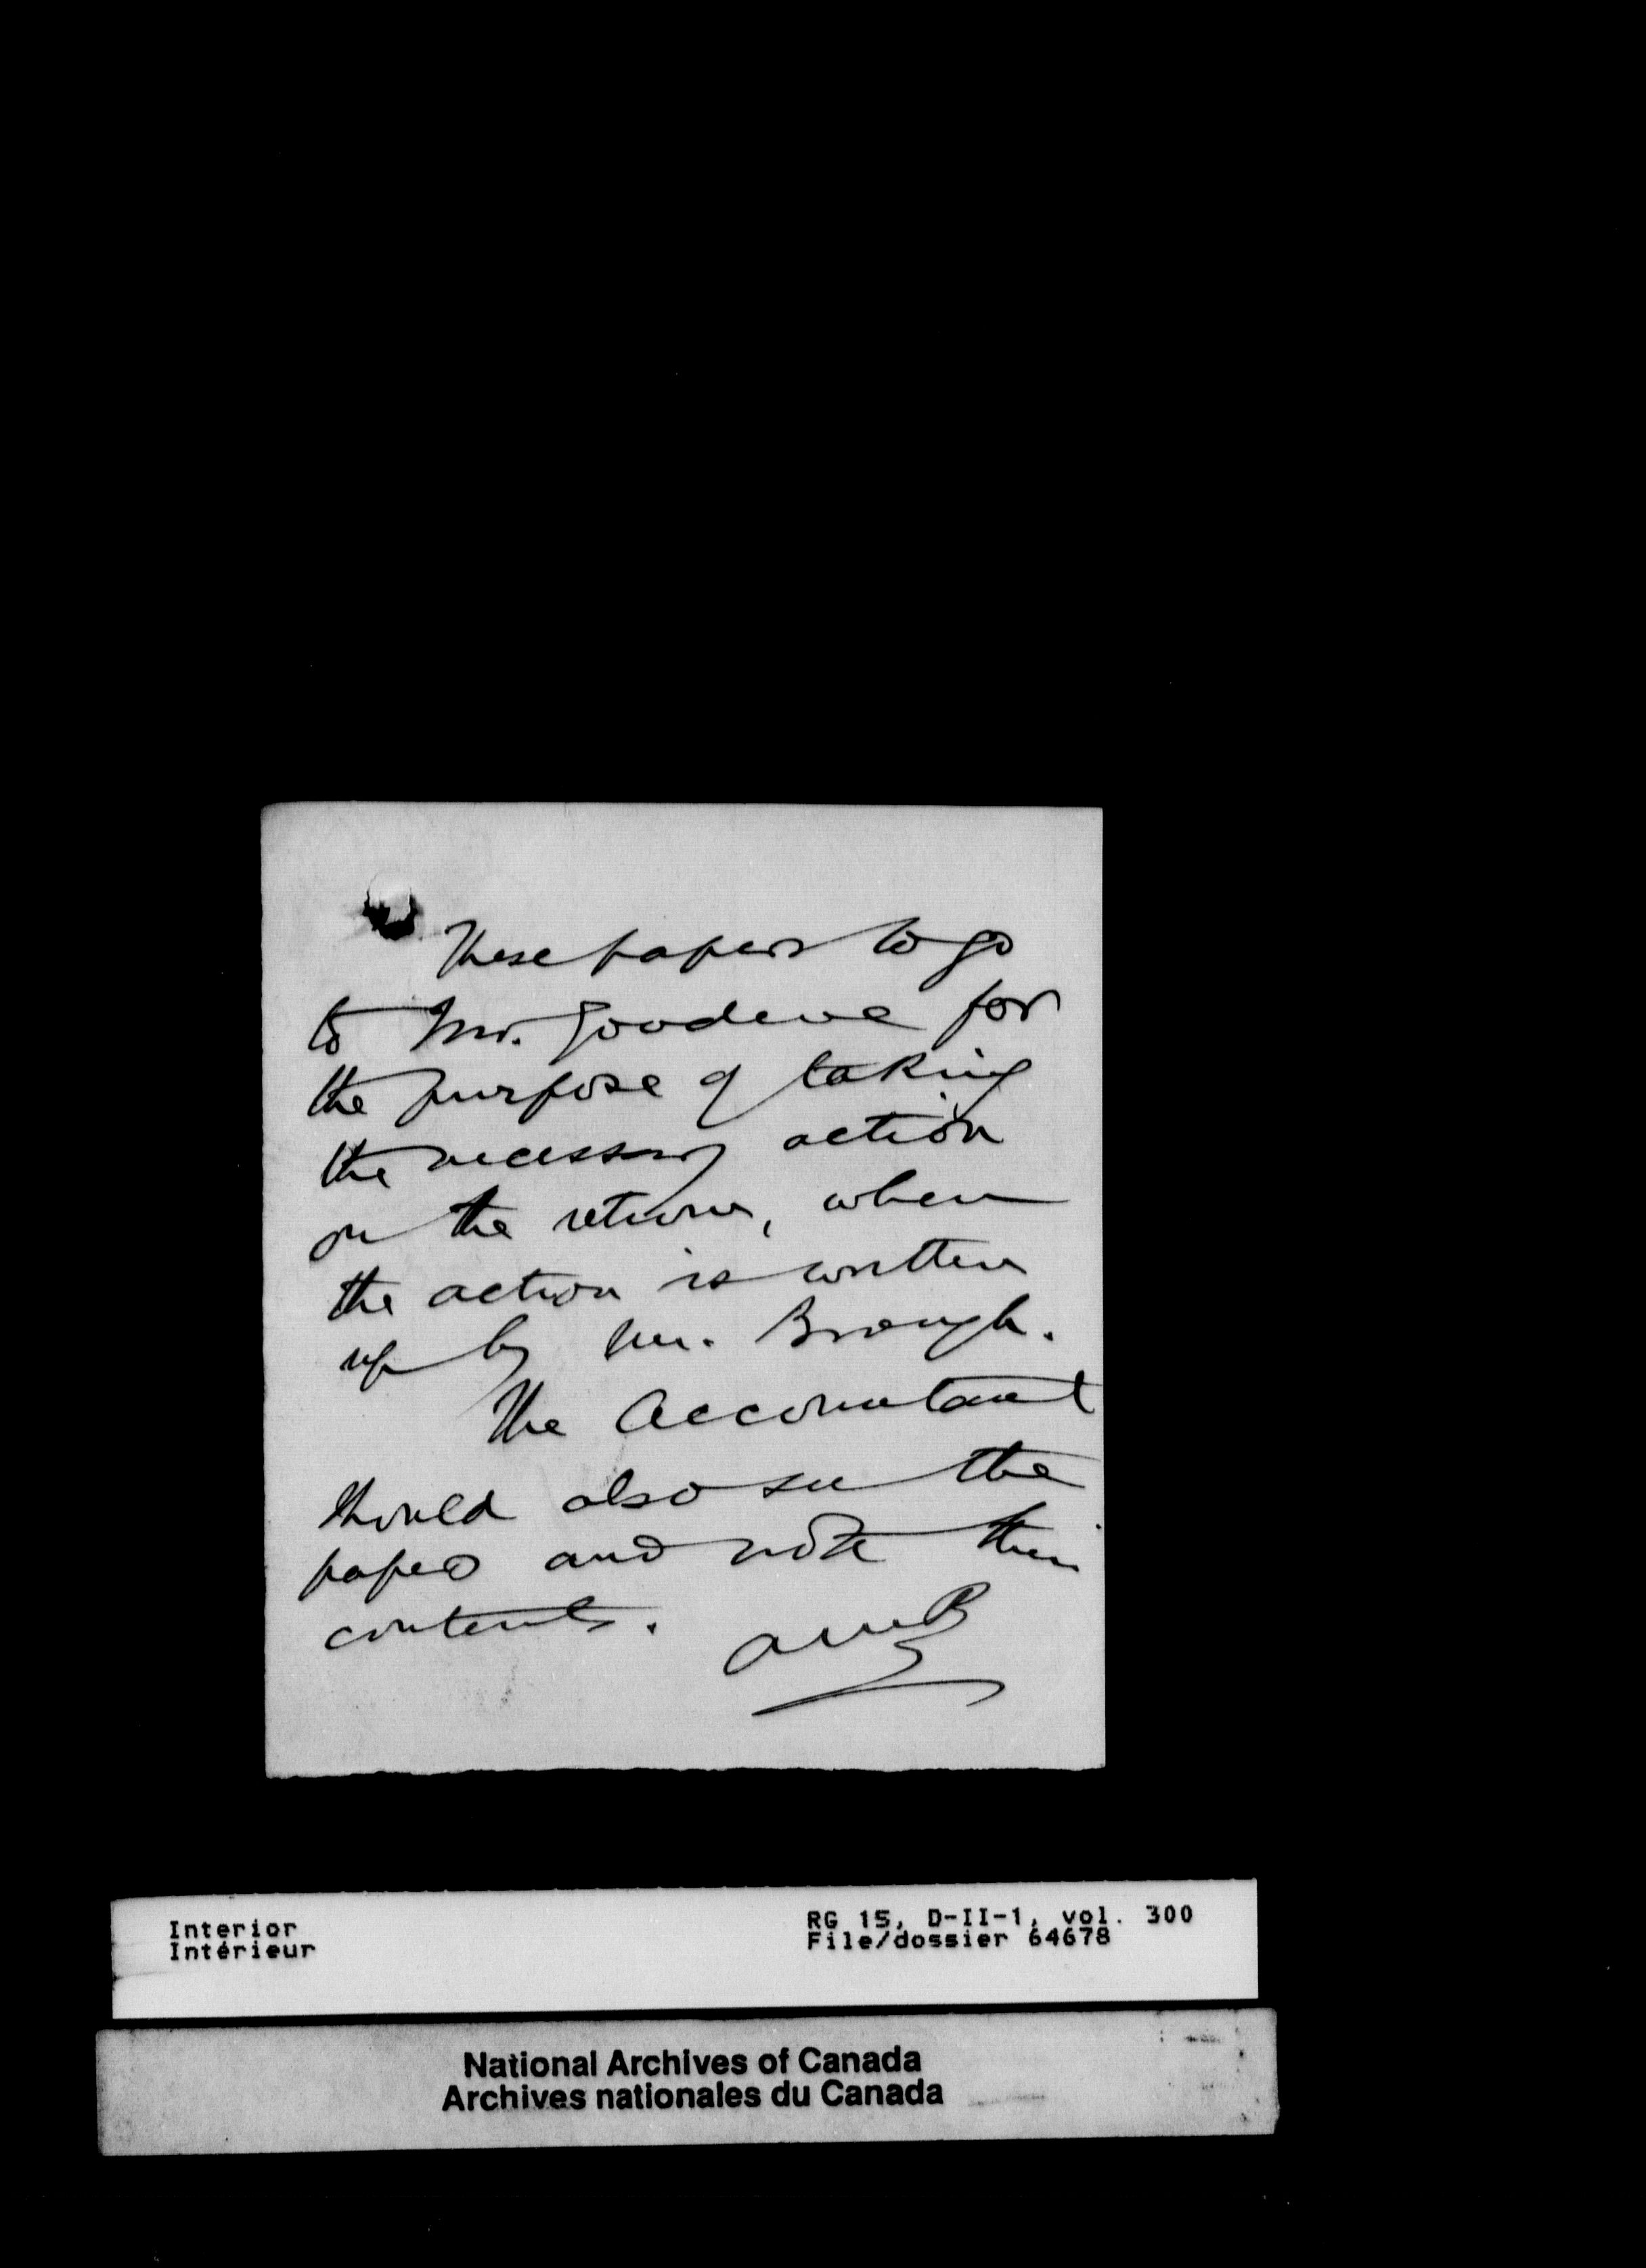 These papers to go
to Mr. Goodeve for
the purpose of taking
the necessary action
on the returns, when
the action is written
up by Mr. Brough.
The Accountant
should also see the
papers and note their
contents. AMB
Interior
Intérieur
RG 15, D-II-1, vol. 300
File/dossier 64678
National Archives of Canada
Archives nationales du Canada